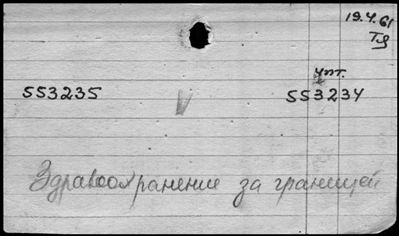 19.4.61
Тя
553235
553234
Здравоохранение за границей